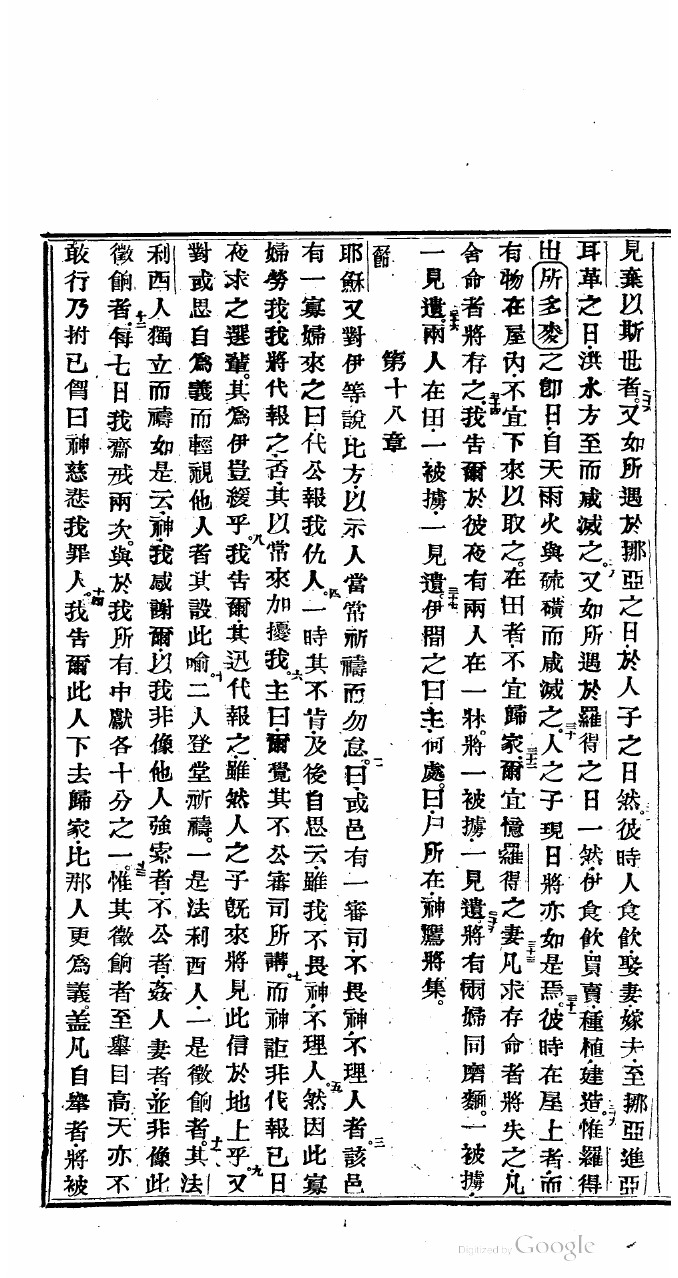 見棄以斯世者。二十六又如所遇於挪亞之日、於人子之日然。彼時人食飲、娶妻、嫁夫、至挪亞進亞
耳革之日、洪水方至而咸滅之。又如所遇於羅得之日一然、伊食飲、買賣、種植、建造。惟羅得
出所多麥之卽日、自天雨火與硫磺而咸滅之。三十人之子現日將亦如是焉。三十一彼時在屋上者、而
有物在屋內、不宜下來以取之。在田者、不宜歸家。三十二爾宜憶羅得之妻。三十三凡求存命者將失之、凡
舍命者將存之。三十四我告爾、於彼夜有兩人在一牀。將一被擄、一見遺。三十五將有兩婦同磨麵。一被擄、
一見遺。三十六兩人在田、一被擄、一見遺。三十七伊問之曰、主、何處。曰、尸所在、神鷹將集。
第十八章
節
耶穌又對伊等說比方、以示人當常祈禱而勿怠。二曰、或邑有一審司、不畏神、不理人者。三該邑
有一寡婦來之曰、代公報我仇人。四一時其不肯、及後自思云、雖我不畏神、不理人。五然因此寡
婦勞我、我將代報之、否、其以常來加擾我。六主曰、爾覺其不公審司所講。七而神詎非代報已日
夜求之選輩。其爲伊豈緩乎。八我告爾、其迅代報之。雖然人之子旣來、將見此信於地上乎。九又
對或思自爲義而輕視他人者、其設此喻。十二人登堂祈禱。一是法利西人、一是徵餉者。十一其法
利西人獨立而禱如是云、神、我感謝爾、以我非像他人強索者、不公者、姦人妻者、並非像此
徵餉者。十二每七日我齋戒兩次。與於我所有中獻各十分之一。十三惟其徵餉者至舉目高天亦不
敢行、乃拊己胷曰、神慈悲我罪人。十四我告爾、此人下去歸家、比那人更爲義。蓋凡自舉者、將被
Digitized by Google